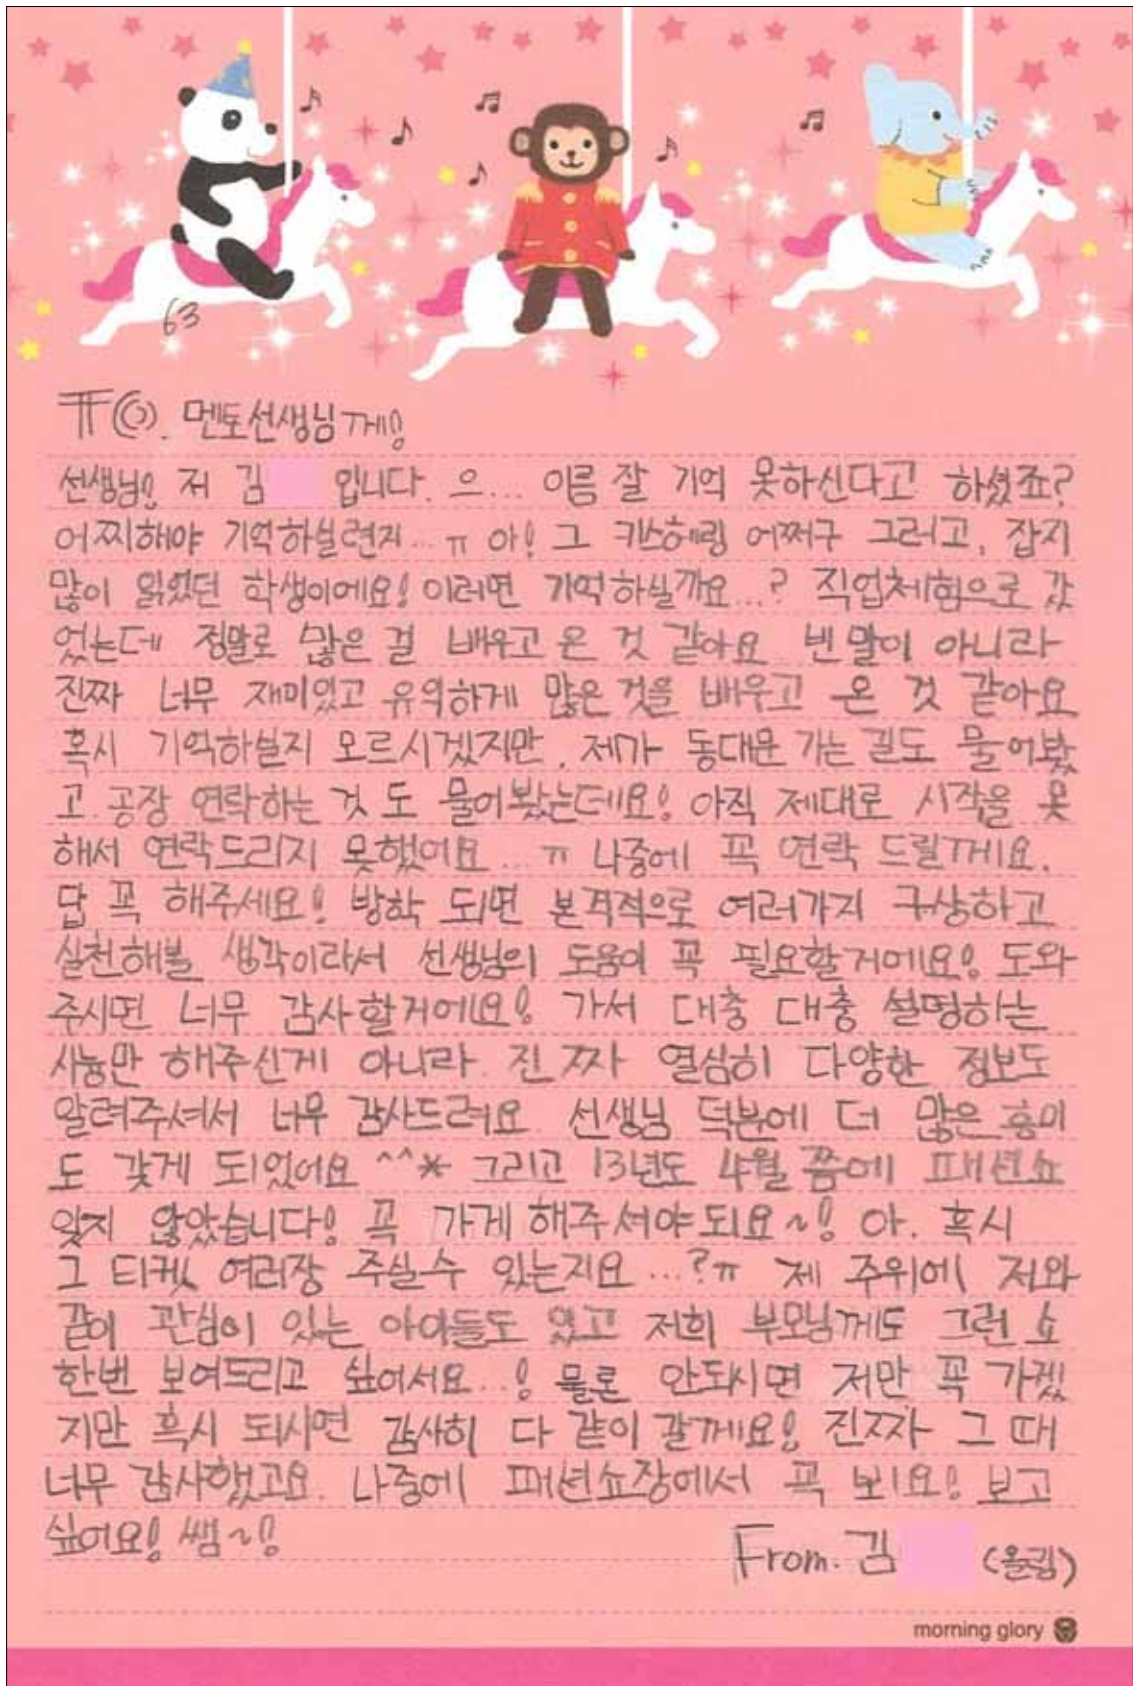 63
TO. 멘토선생님께!
선생님! 저 김 입니다. 으... 이름 잘 기억 못하신다고 하셨죠?
어찌해야 기억하실련지...ㅠ 아! 그 키스해링 어쩌구 그러고, 잡지
많이 읽었던 학생이에요! 이러면 기억하실까요...? 직업체험으로 갔
었는데 정말로 많은 걸 배우고 온 것 같아요 빈말이 아니라
진짜 너무 재미있고 유익하게 많은것을 배우고 온 것 같아요
혹시 기억하실지 모르시겠지만, 제가 동대문 가는 길도 물어봤
고 공장 연락하는 것도 물어봤는데요! 아직 제대로 시작을 못
해서 연락드리지 못했어요...ㅠ 나중에 꼭 연락 드릴께요.
답 꼭 해주세요! 방학 되면 본격적으로 여러가지 구상하고
실천해볼 생각이라서 선생님의 도움이 꼭 필요할거에요! 도와
주시면 너무 감사할거에요! 가서 대충 대충 설명하는
시늉만 해주신게 아니라 진짜 열심히 다양한 정보도
알려주셔서 너무 감사드려요 선생님 덕분에 더 많은 흥미
도 갖게 되었어요 ^^* 그리고 13년도 4월 쯤에 패션쇼
잊지 않았습니다! 꼭 가게 해주셔야되요~! 아. 혹시
그 티켓 여러장 주실수 있는지요...?ㅠ 제 주위에 저와
같이 관심이 있는 아이들도 있고 저희 부모님께도 그런 쇼
한번 보여드리고 싶어서요...! 물론 안되시면 저만 꼭 가겠
지만 혹시 되시면 감사히 다 같이 갈께요! 진짜 그 때
너무 감사했고요. 나중에 패션쇼장에서 꼭 뵈요! 보고
싶어요! 쌤~!
From. 김 (올림)
morning glory